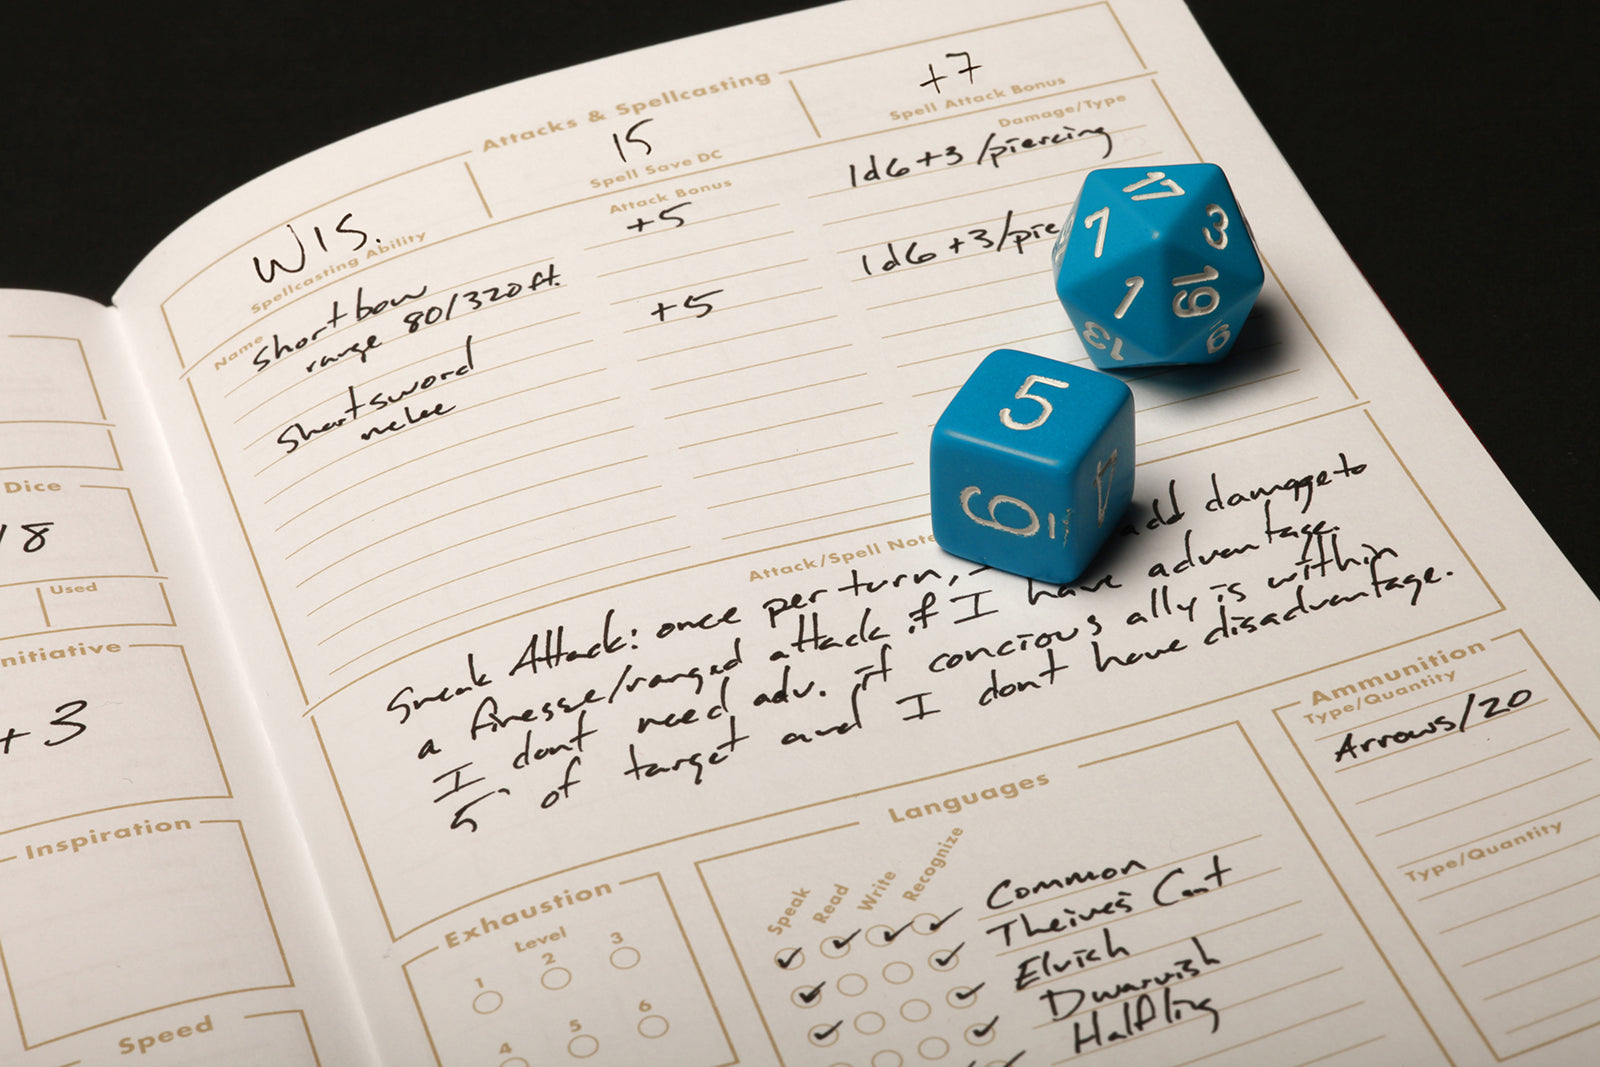 Attacks & Spellcasting
WIS.
Spellcasting Ability
15
Spell Save DC
+7
Spell Attack Bonus
Name
Attack Bonus
Damage/Type
Shortbow
range 80/320 ft.
+5
1d6+3/piercing
Shortsword
melee
+5
1d6+3/pie
17
7
3
1
19
13
9
5
6
1
4
Attack/Spell Note
Sneak Attack: once per turn, add damage to
a finesse/ranged attack if I have advantage.
I dont need adv. if concious ally is within
5' of target and I dont have disadvantage.
Dice
18
Used
nitiative
+3
Inspiration
Speed
Exhaustion
Level
1
2
3
4
5
6
Languages
Speak
Read
Write
Recognize
Common
Theives' Cant
Elvish
Dwarvish
Halfling
Ammunition
Type/Quantity
Arrows/20
Type/Quantity